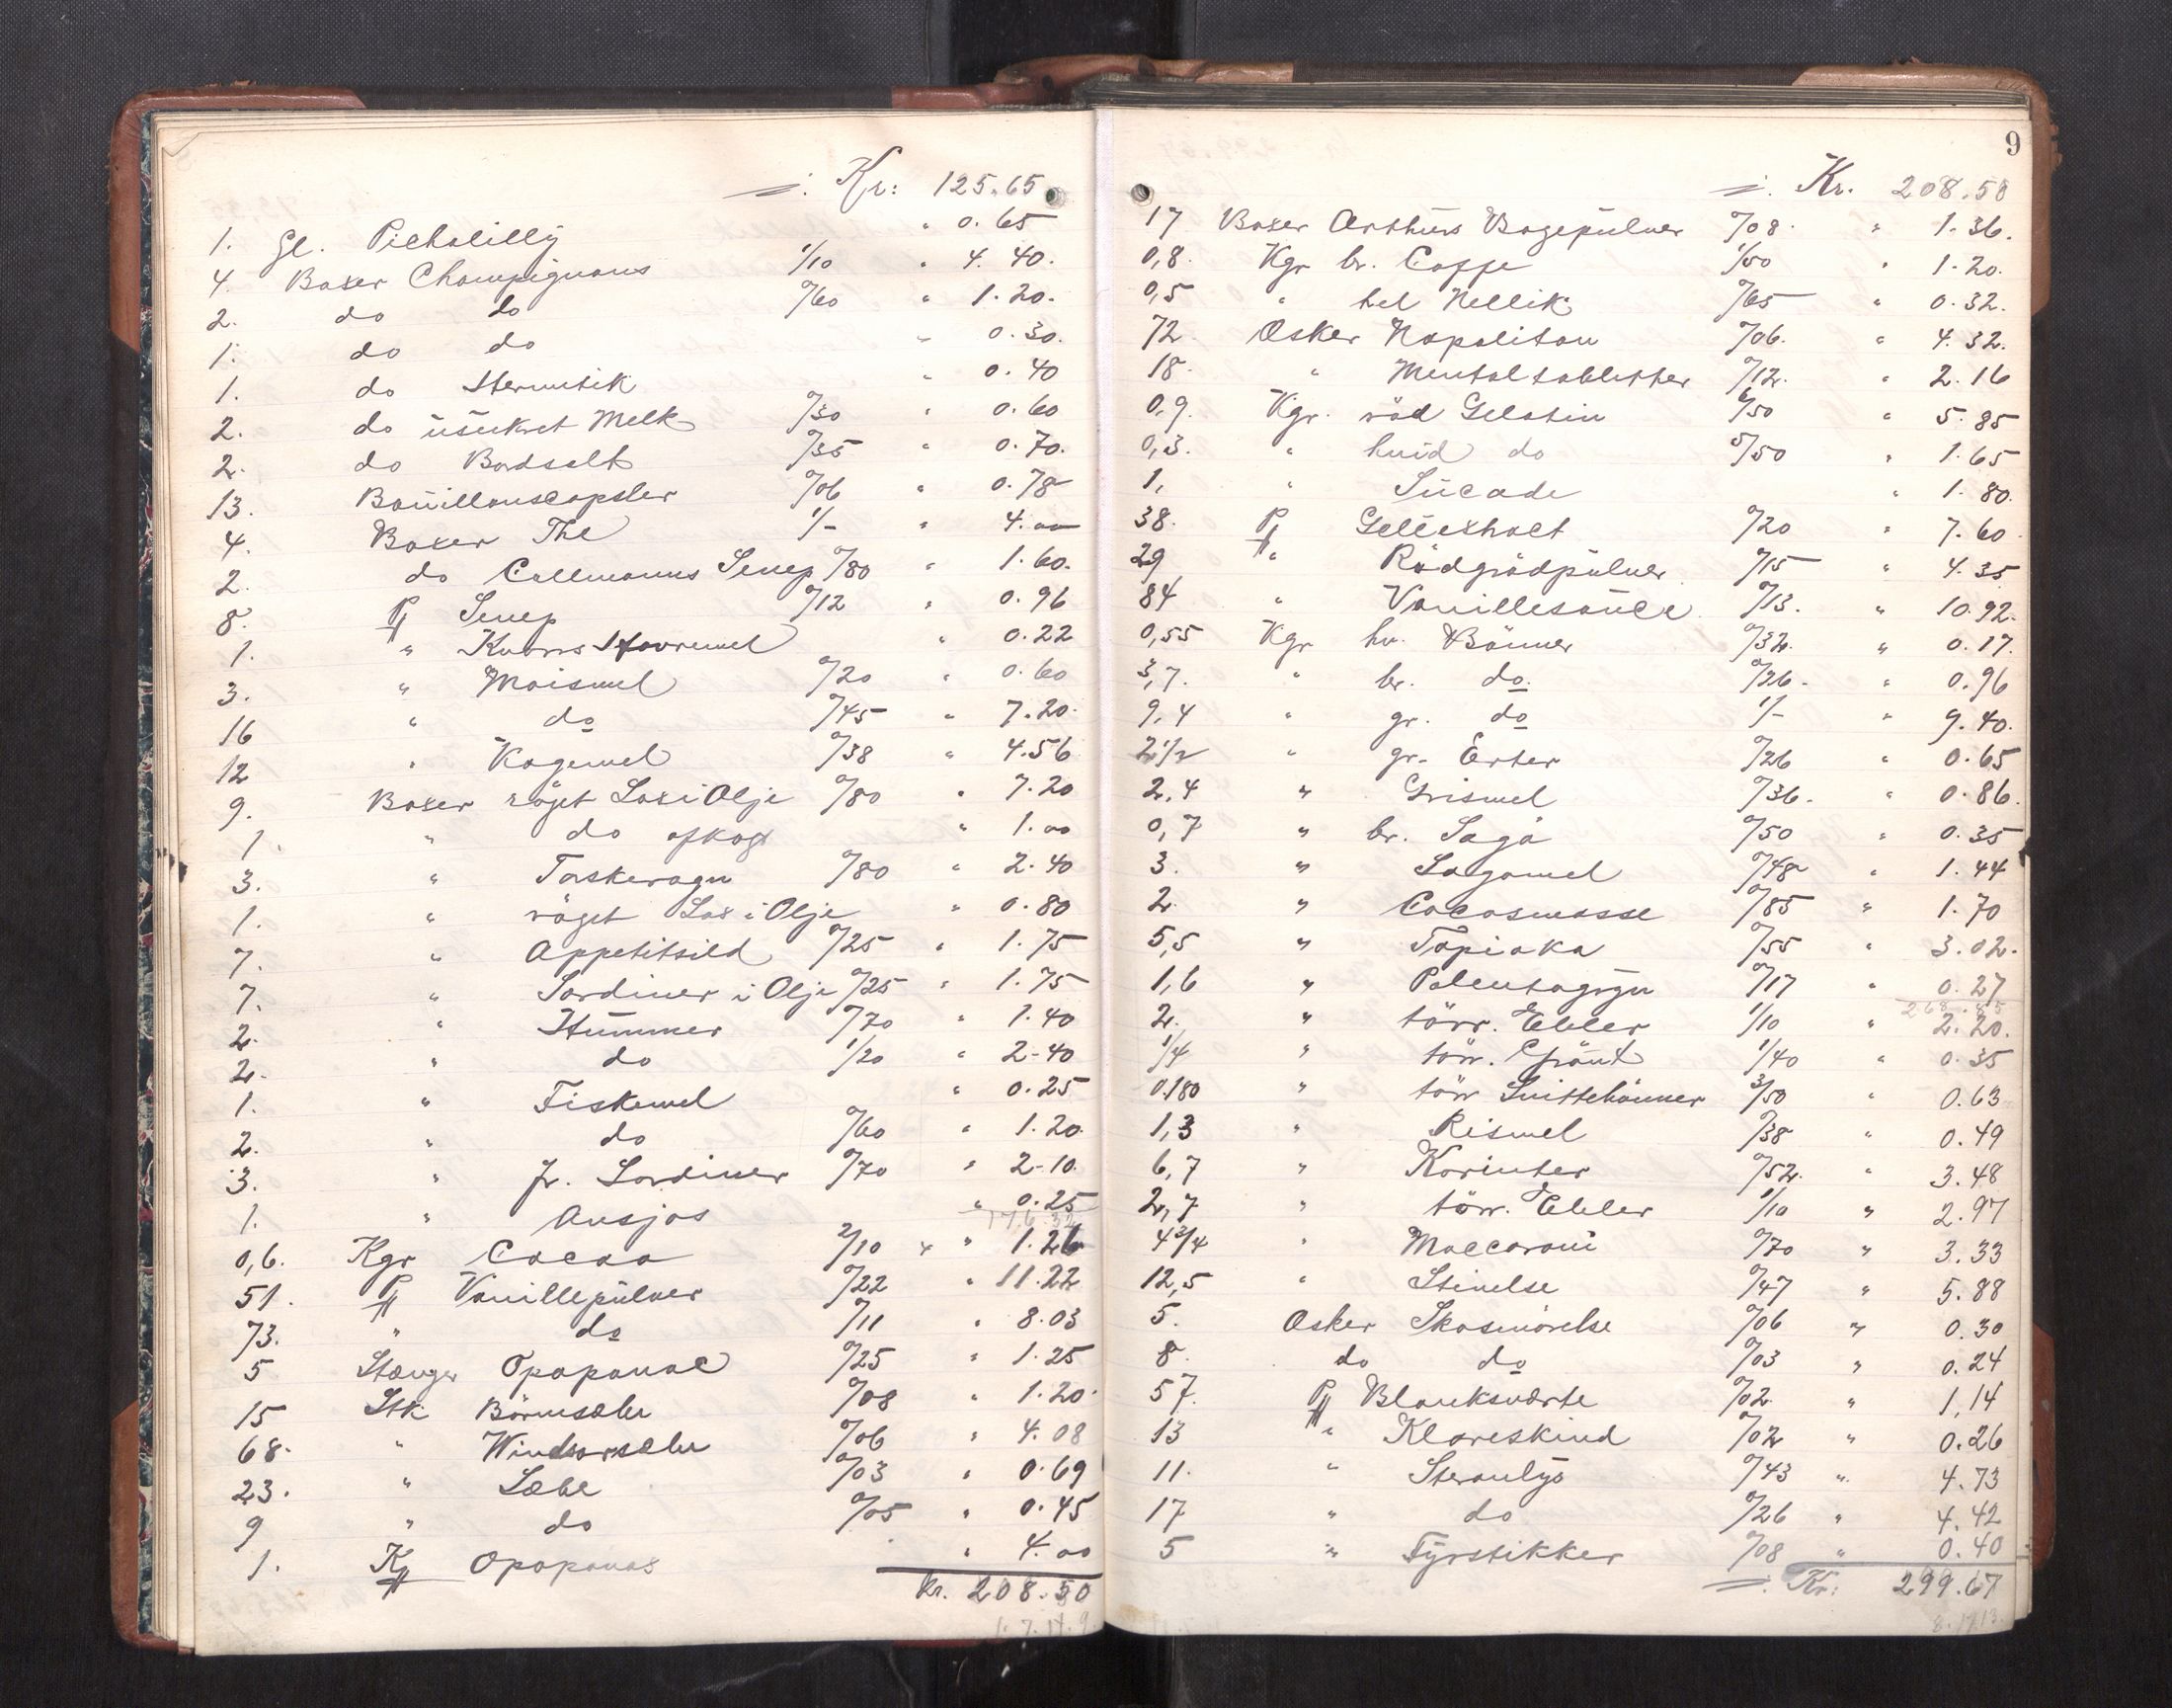 Kr: 125.65
1. Gl. Pickalilly " 0.65
4. Boxer Champignons 1/10 " 4.40.
2. do do 0/60 " 1.20.
1. do do " 0.30.
1. do Hermetik " 0.40
2. do usukret Melk 0/30 " 0.60
2. do Bordsalt 0/35 " 0.70.
13. Bouillonscapsler 0/06 " 0.78
4. Boxer The 1/- " 4.00
2. do Collmanns Senep 0/80 " 1.60.
8. P Senep 0/12 " 0.96
1. " Knorrs Havremel " 0.22
3. " Maismel 0/20 " 0.60
16 " do 0/45 " 7.20.
12 " Kagemel 0/38 " 4.56
9. Boxer röget Lax i Olje 0/80 " 7.20
1. " do afkogt " 1.00
3. " Torskerogn 0/80 " 2.40
1. " röget Lax i Olje " 0.80
7. " Appetitsild 0/25 " 1.75
7. " Sardiner i Olje 0/25 " 1.75
2. " Hummer 0/70 " 1.40
2. " do 1/20 " 2-40
1. " Fiskemel " 0.25
2. " do 0/60 " 1.20.
3. " fr. Sardiner 0/70 " 2-10.
1. " Ansjos " 0.25
176.32
0,6. Kgr Cacao 2/10 " " 1.26
51. P Vanillepulver 0/22 " 11.22
73. " do 0/11 " 8.03
5 Stænger Opoponac 0/25 " 1.25
15 Stk Börnsæbe 0/08 " 1.20.
68. " Windsorsæbe 0/06 " 4.08
23. " Sæbe 0/03 " 0.69
9 " do 0/05 " 0.45
1. K Opoponax " 4.00
kr. 208.50
9
Kr. 208.58
17 Boxer Arthurs Bagepulver 0/08. " 1.36.
0,8. Kgr br. Caffe 1/50 " 1.20.
0,5 " hel Nellik 0/65 " 0.32.
72 Æsker Napolitan 0/06. " 4.32.
18. " Mentoltabletter 0/12. " 2.16
0,9. Kgr. röd Gelatin 6/50 " 5.85
0,3. " hvid do 5/50 " 1.65
1, " Sucade " 1.80.
38. P Geleextrakt 0/20 " 7.60
29 " Rödgrödpulver 0/15 " 4.35
84 " Vanillesauce 0/13. " 10.92.
0,55 Kgr hv. Bönner 0/32. " 0.17.
3,7. " br. do. 0/26. " 0.96
9,4 " gr. do 1/- " 9.40.
2 1/2 " gr. Erter 0/26 " 0.65
2,4 " Grismel 0/36. " 0.86.
0,7 " br. Sago 0/50 " 0.35
3. " Sagomel 0/48 " 1.44
2 " Cocosmasse 0/85 " 1.70
5,5 " Tapioka 0/55 " 3.02.
1,6 " Polentagryn 0/17 " 0.27
268.85
2. " törr. Ebler 1/10 " 2.20.
1/4 " törr. Grönt 1/40 " 0.35
0.180 " törr Snittebönner 3/50 " 0.63
1,3 " Rismel 0/38 " 0.49
6,7 " Korinter 0/52. " 3.48
2,7 " törr. Ebler 1/10 " 2.97
4 3/4 " Maccaroni 0/70 " 3.33
12,5 " Stivelse 0/47 " 5.88
5. Æsker Skosmörelse 0/06 " 0.30
8. do do 0/03 " 0.24
57. P Blanksværte 0/02. " 1,14
13 " Klareskind 0/02 " 0.26
11. " Stearilys 0/43 " 4.73
17 " do 0/26 " 4.42
5 " Fyrstikker 0/08 " 0.40
Kr: 299.67